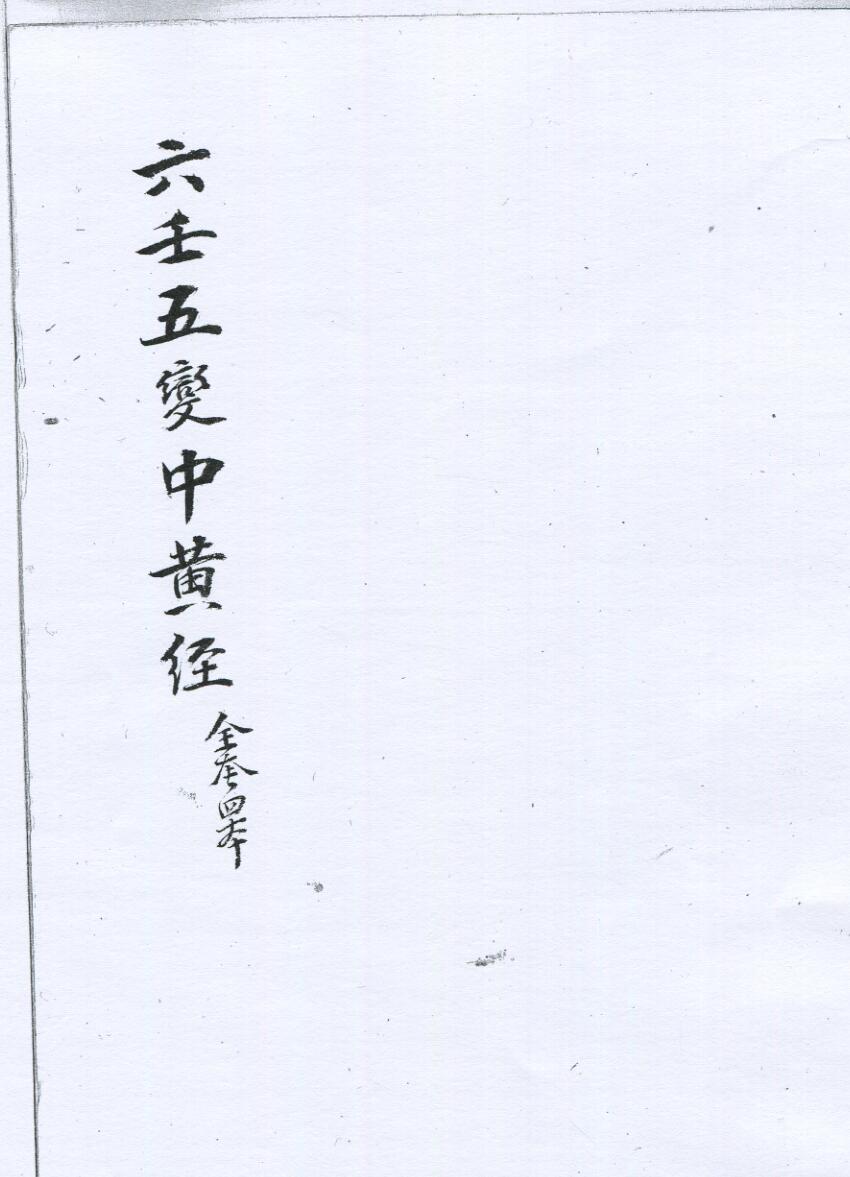 六壬五變中黄经
全夲四本